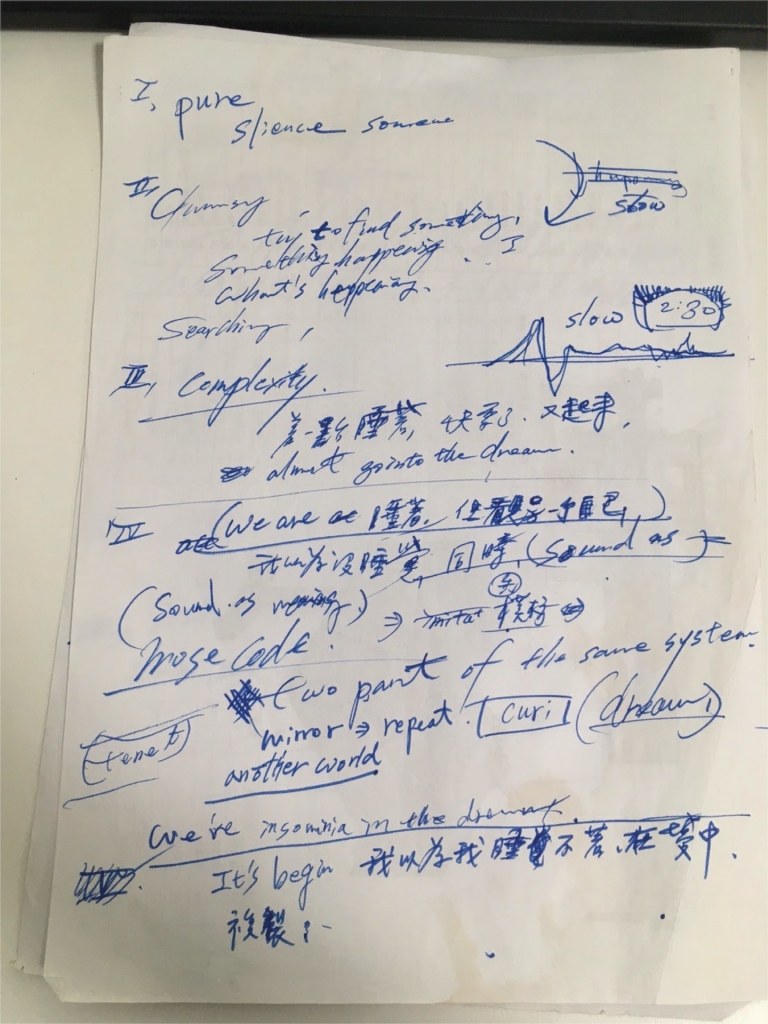 I, pure
slience
II, Clumsy
try to find something,
something happening. I
what's heppening.
Searching,
slow
slow 2:30
III, Complexity.
差一點睡著, 快睡了. 又起來,
almost go into the dream.
IV (We are at 睡著, 但觀景一個自己,)
我以為沒睡覺, 同時, (Sound as
(Sound as meaning,) ⇒ 模糊 ⇒
Morse code.
two part of the same system.
mirror ⇒ repeat. curi (dream,)
(tenet)
another world
we're insominia in the dream.
It's begin 我以為我睡不著、在夢中、
複製了